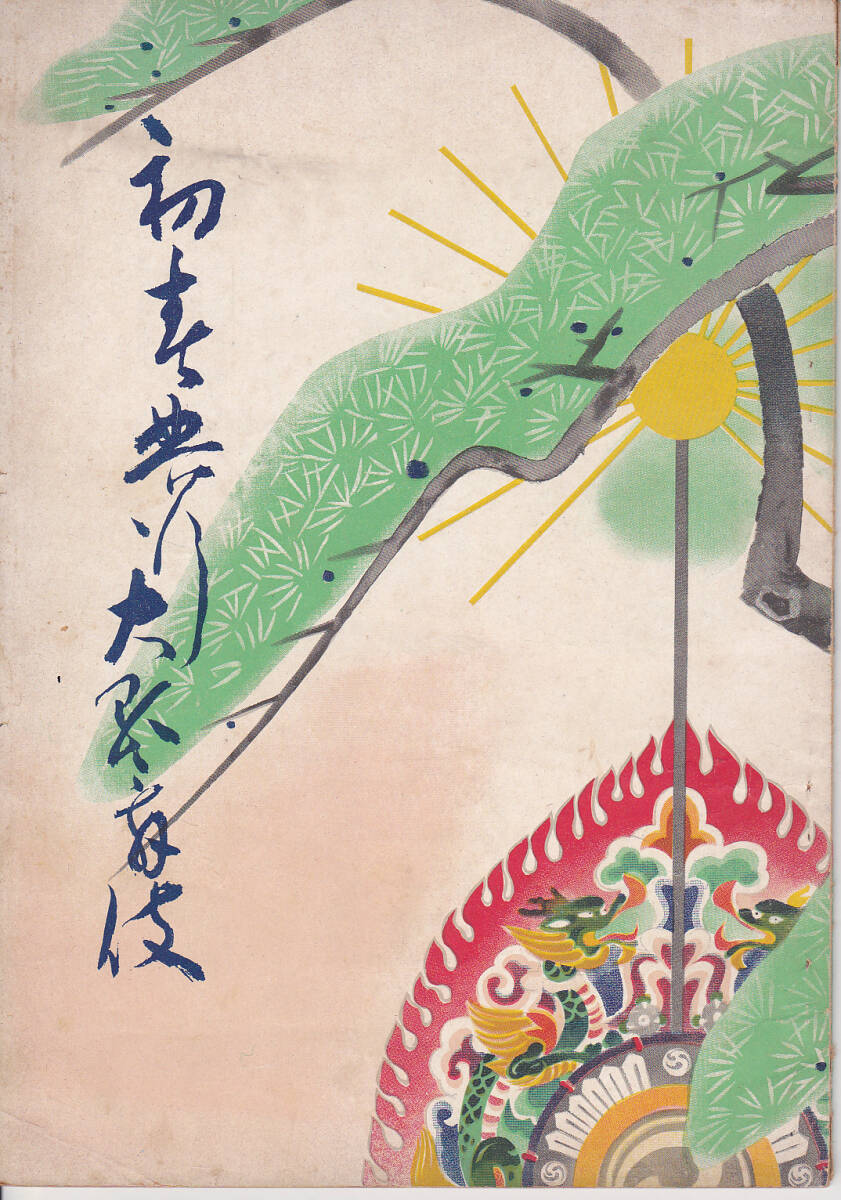 初春興行大歌舞伎